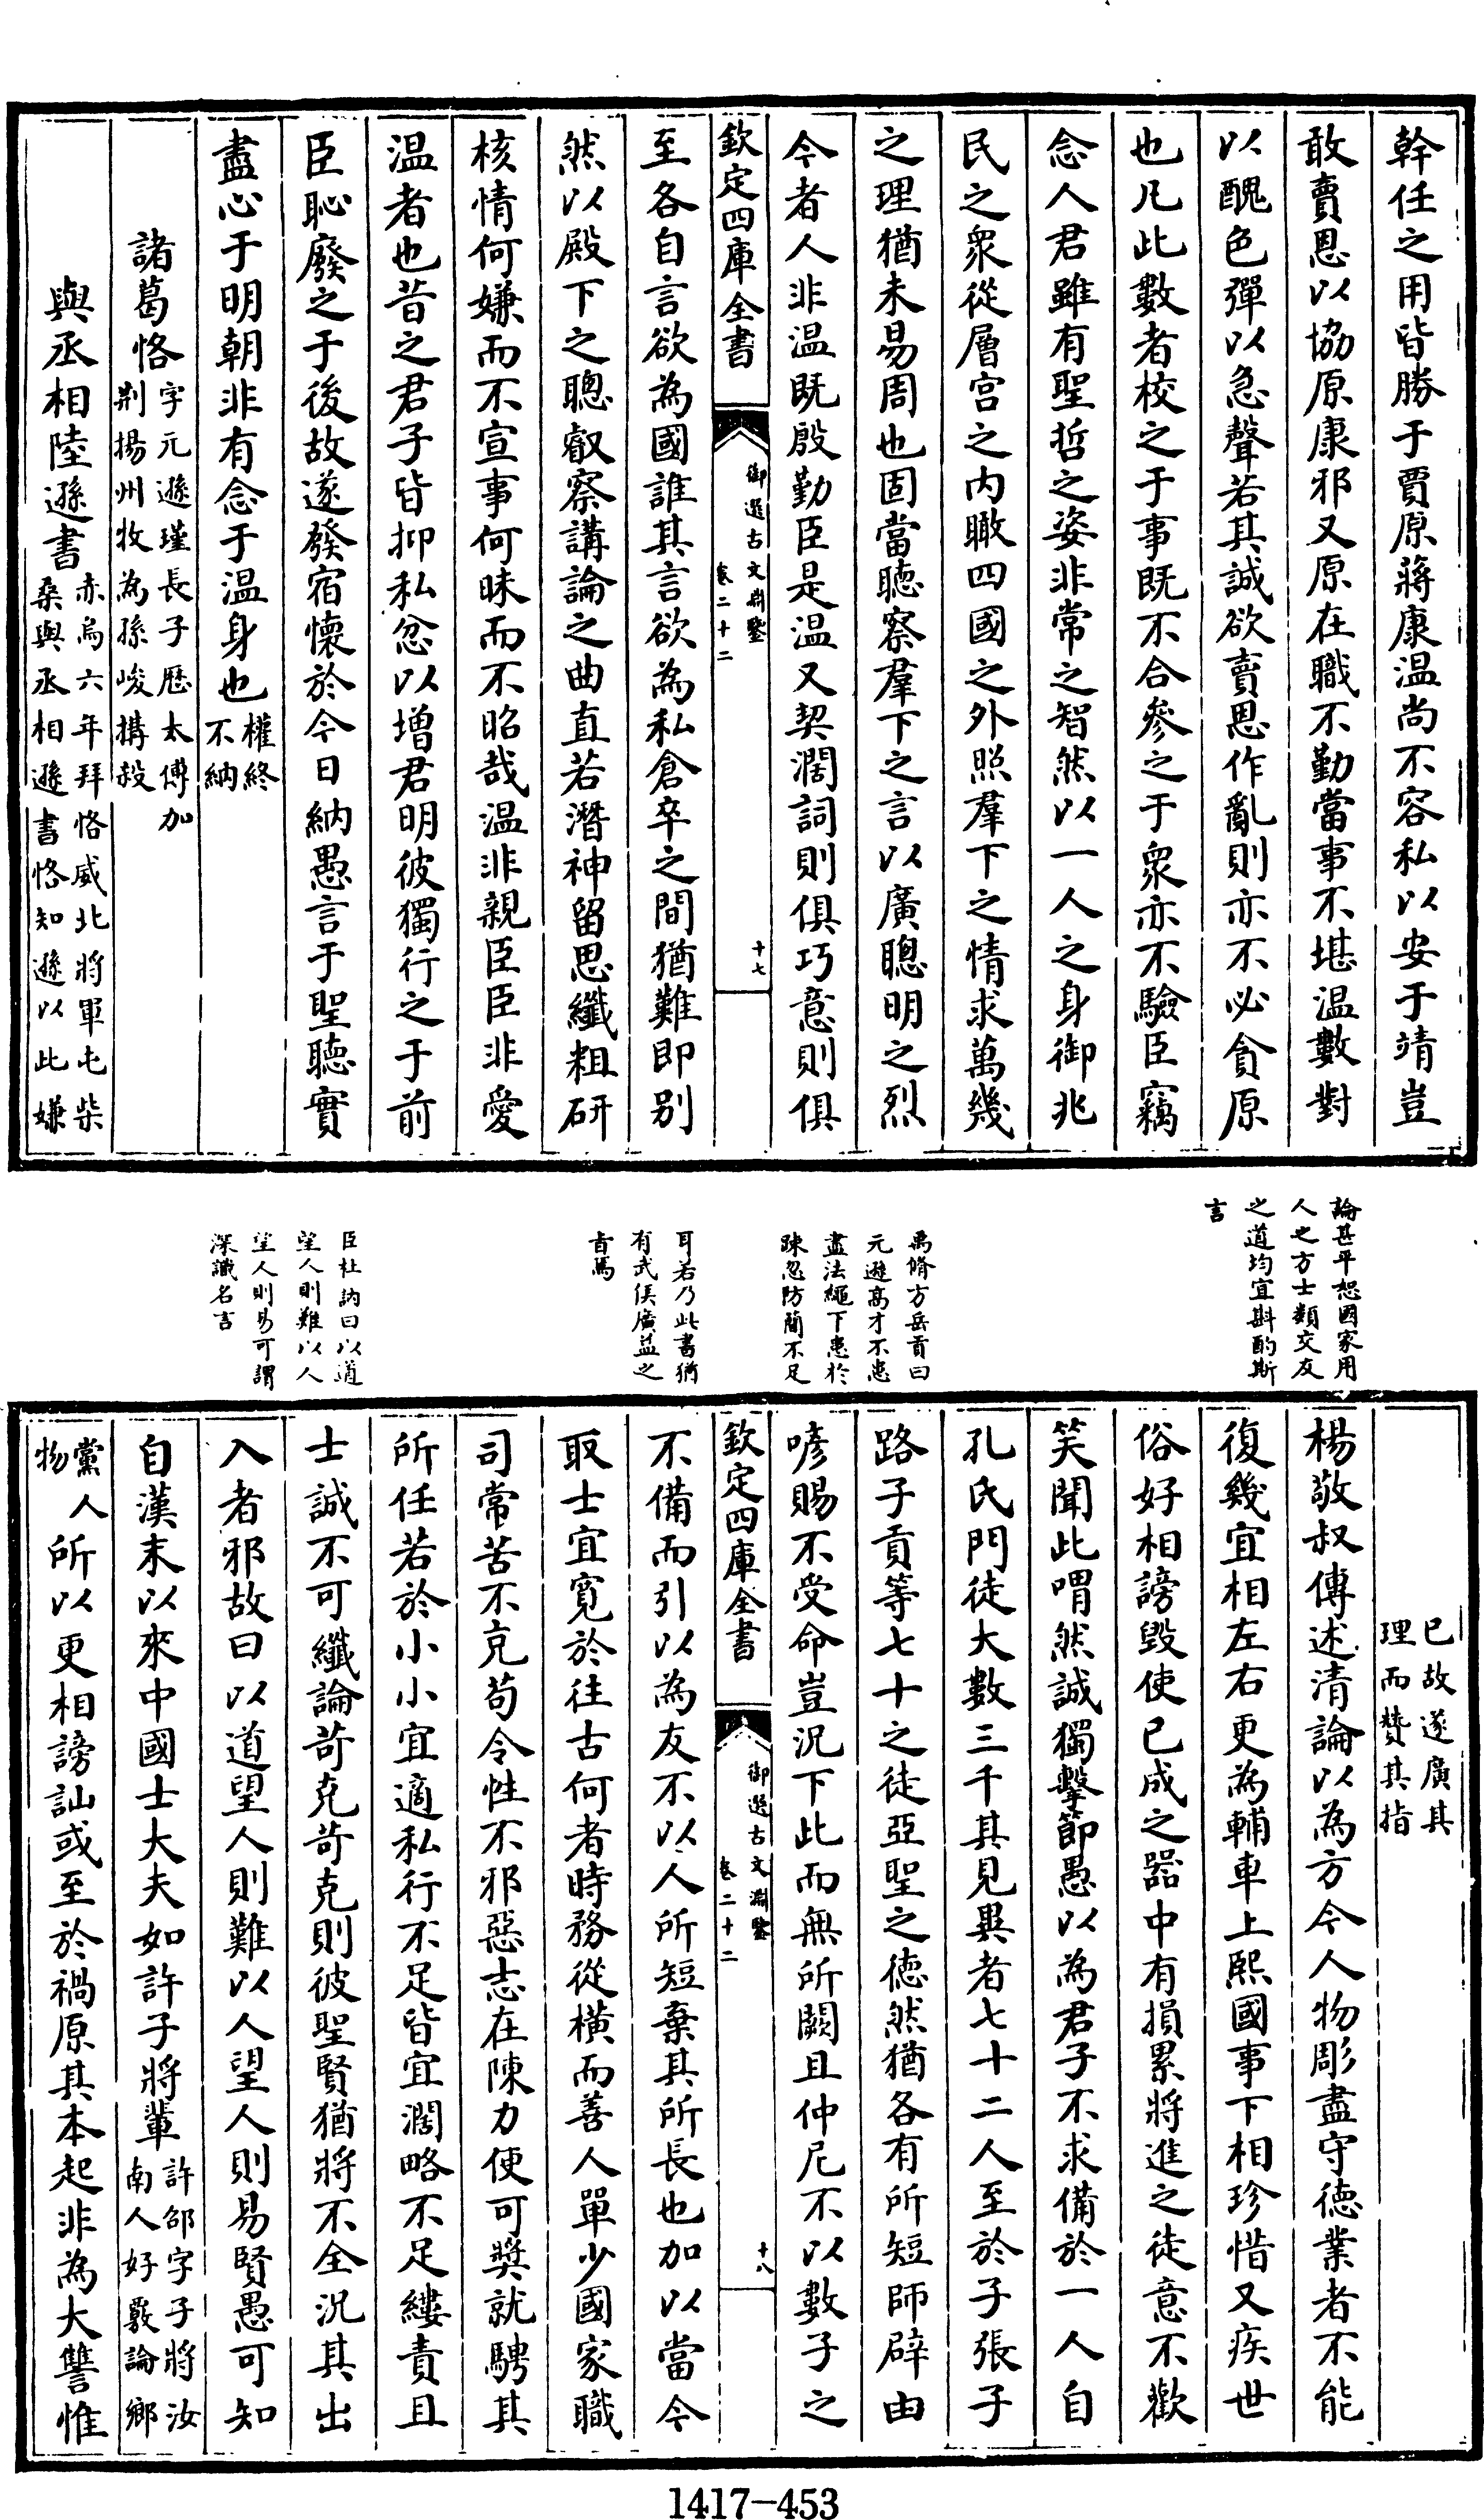 幹任之用皆勝于賈原蔣康温尚不容私以安于靖豈
敢賣恩以協原康邪又原在職不勤當事不堪温數對
以醜色彈以急聲若其誠欲賣恩作亂則亦不必貪原
也凡此數者校之于事既不合參之于衆亦不驗臣竊
念人君雖有聖哲之姿非常之智然以一人之身御兆
民之衆從層宫之内瞰四國之外照羣下之情求萬幾
之理猶未易周也固當聴察羣下之言以廣聰明之烈
今者人非温既殷勤臣是温又契濶詞則俱巧意則俱
欽定四庫全書
御選古文淵鑒
卷二十二
十七
至各自言欲為國誰其言欲為私倉卒之間猶難即别
然以殿下之聰叡察講論之曲直若潛神留思纖粗研
核情何嫌而不宣事何昧而不昭哉温非親臣臣非愛
温者也昔之君子皆抑私忿以增君明彼獨行之于前
臣恥廢之于後故遂發宿懷於今日納愚言于聖聴實
盡心于明朝非有念于温身也權終
不納
諸葛恪字元遜瑾長子歴太傅加
荆揚州牧為孫峻搆殺
與丞相陸遜書赤烏六年拜恪威北將軍屯柴
桑與丞相遜書恪知遜以此嫌
論甚平恕國家用
人之方士類交友
之道均宜斟酌斯
言
禹脩方岳貢曰
元遜高才不患
盡法繩下患於
疎忽防簡不足
耳若乃此書猶
有武侯廣益之
旨焉
臣杜訥曰以道
望人則難以人
望人則易可謂
深識名言
已故遂廣其
理而贊其指
楊敬叔傳述清論以為方今人物彫盡守德業者不能
復幾宜相左右更為輔車上熙國事下相珍惜又疾世
俗好相謗毀使已成之器中有損累將進之徒意不歡
笑聞此喟然誠獨擊節愚以為君子不求備於一人自
孔氏門徒大數三千其見異者七十二人至於子張子
路子貢等七十之徒亞聖之德然猶各有所短師辟由
喭賜不受命豈況下此而無所闕且仲尼不以數子之
欽定四庫全書
御選古文淵鑒
卷二十二
十八
不備而引以為友不以人所短棄其所長也加以當今
取士宜寛於往古何者時務從橫而善人單少國家職
司常苦不克苟令性不邪惡志在陳力便可奬就騁其
所任若於小小宜適私行不足皆宜濶略不足縷責且
士誠不可纖論苛克苛克則彼聖賢猶將不全況其出
入者邪故曰以道望人則難以人望人則易賢愚可知
自漢末以來中國士大夫如許子將輩許邵字子將汝
南人好覈論鄉
黨人
物所以更相謗訕或至於禍原其本起非為大讐惟
1417-453